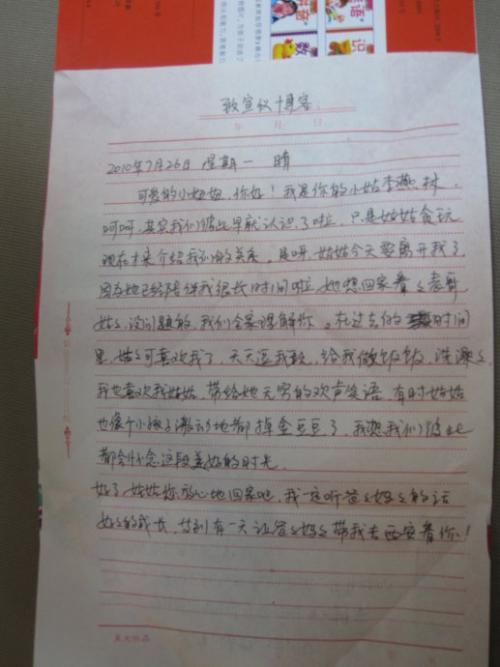 英语
识
数
敖宣仪博客
年 月 日
2010年7月26日 星期一 晴
可爱的小妞妞,你好!我是你的小姑李燕林,
呵呵,其实我们彼此早就认识了啦,只是姑姑贪玩
现在才来介绍我们的关系,是呀,姑姑今天要离开我了
因为她已经陪伴我很长时间啦,她想回家看看表哥
姑姑,没问题的,我们全家理解你。在过去的时间
里,姑姑可喜欢我了,天天逗我玩,给我做饭饭,洗澡澡
我也喜欢我姑姑,带给她无穷的欢声笑语,有时姑姑
也像个小孩子激动地都掉金豆豆了,我想我们彼此
都会怀念这段美好的时光
好了姑姑您放心地回家吧,我一定听爸爸妈妈的话
好好的成长,等到有一天让爸爸妈妈带我去西安看你!